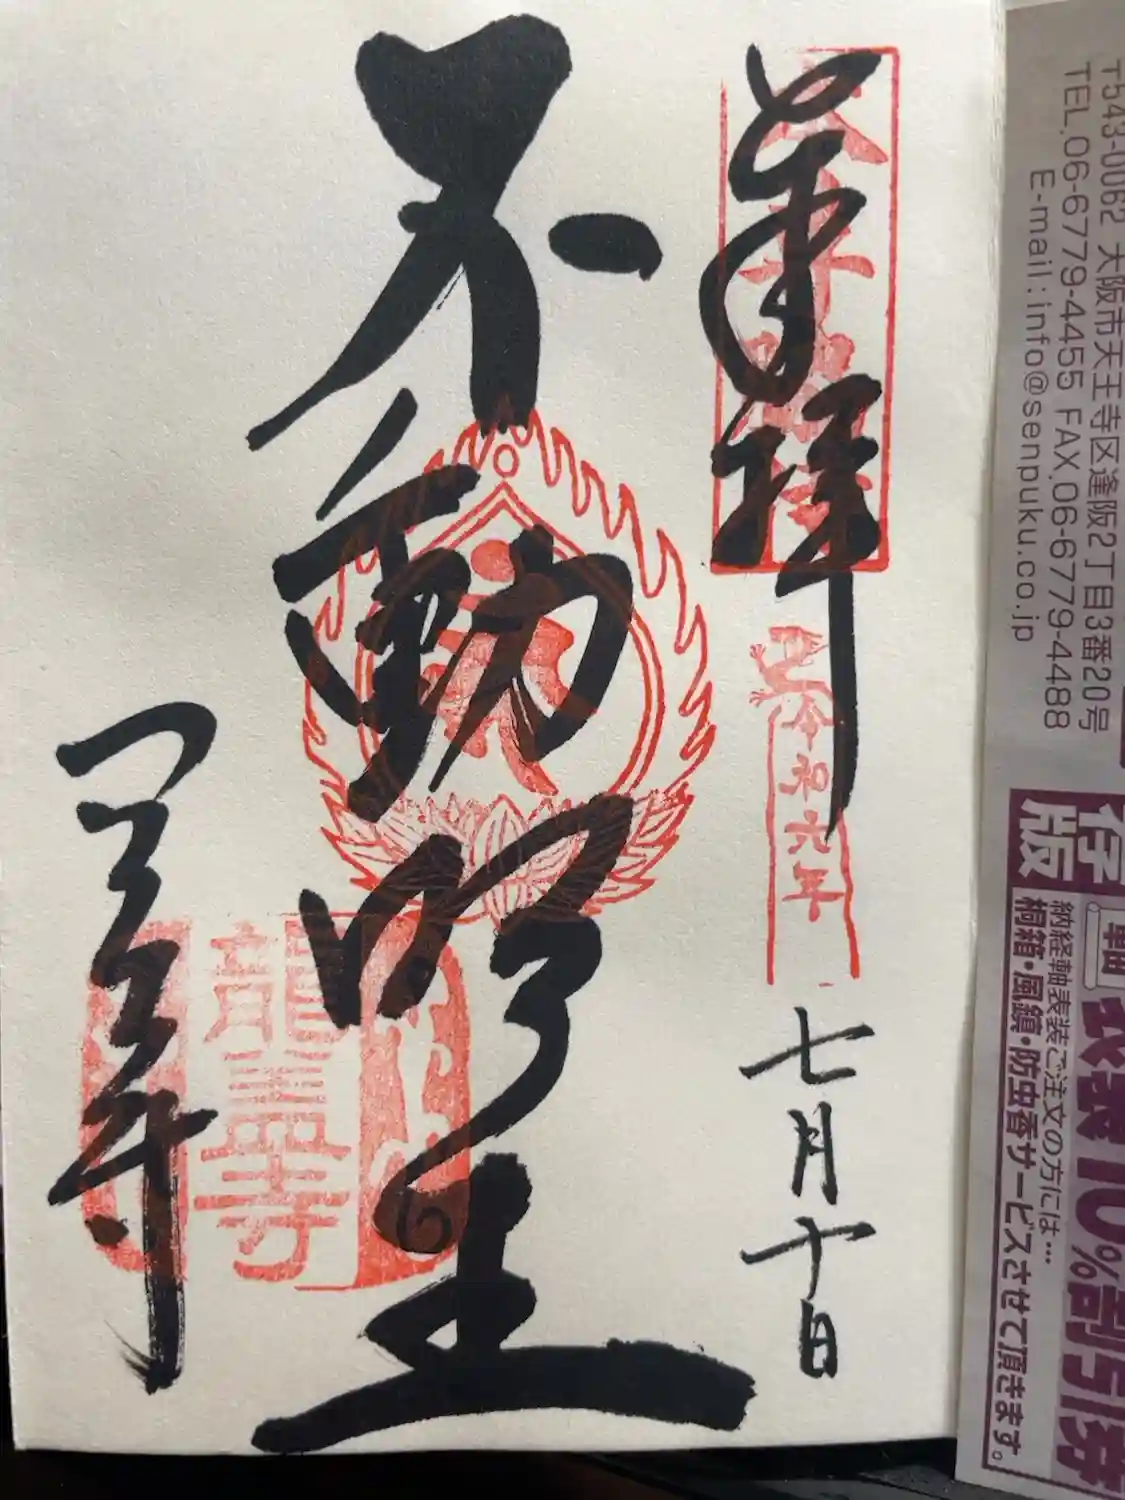 〒543-0062 大阪市天王寺区逢阪2丁目3番20号
TEL.06-6779-4455 FAX.06-6779-4488
E-mail:info@senpuku.co.jp
保存版
納経軸表装ご注文の方には…
桐箱・風鎮・防虫香サービスさせて頂きます。
軸表装10%割引券
奉拝
令和六年
七月十日
不動明王
龍蓋寺